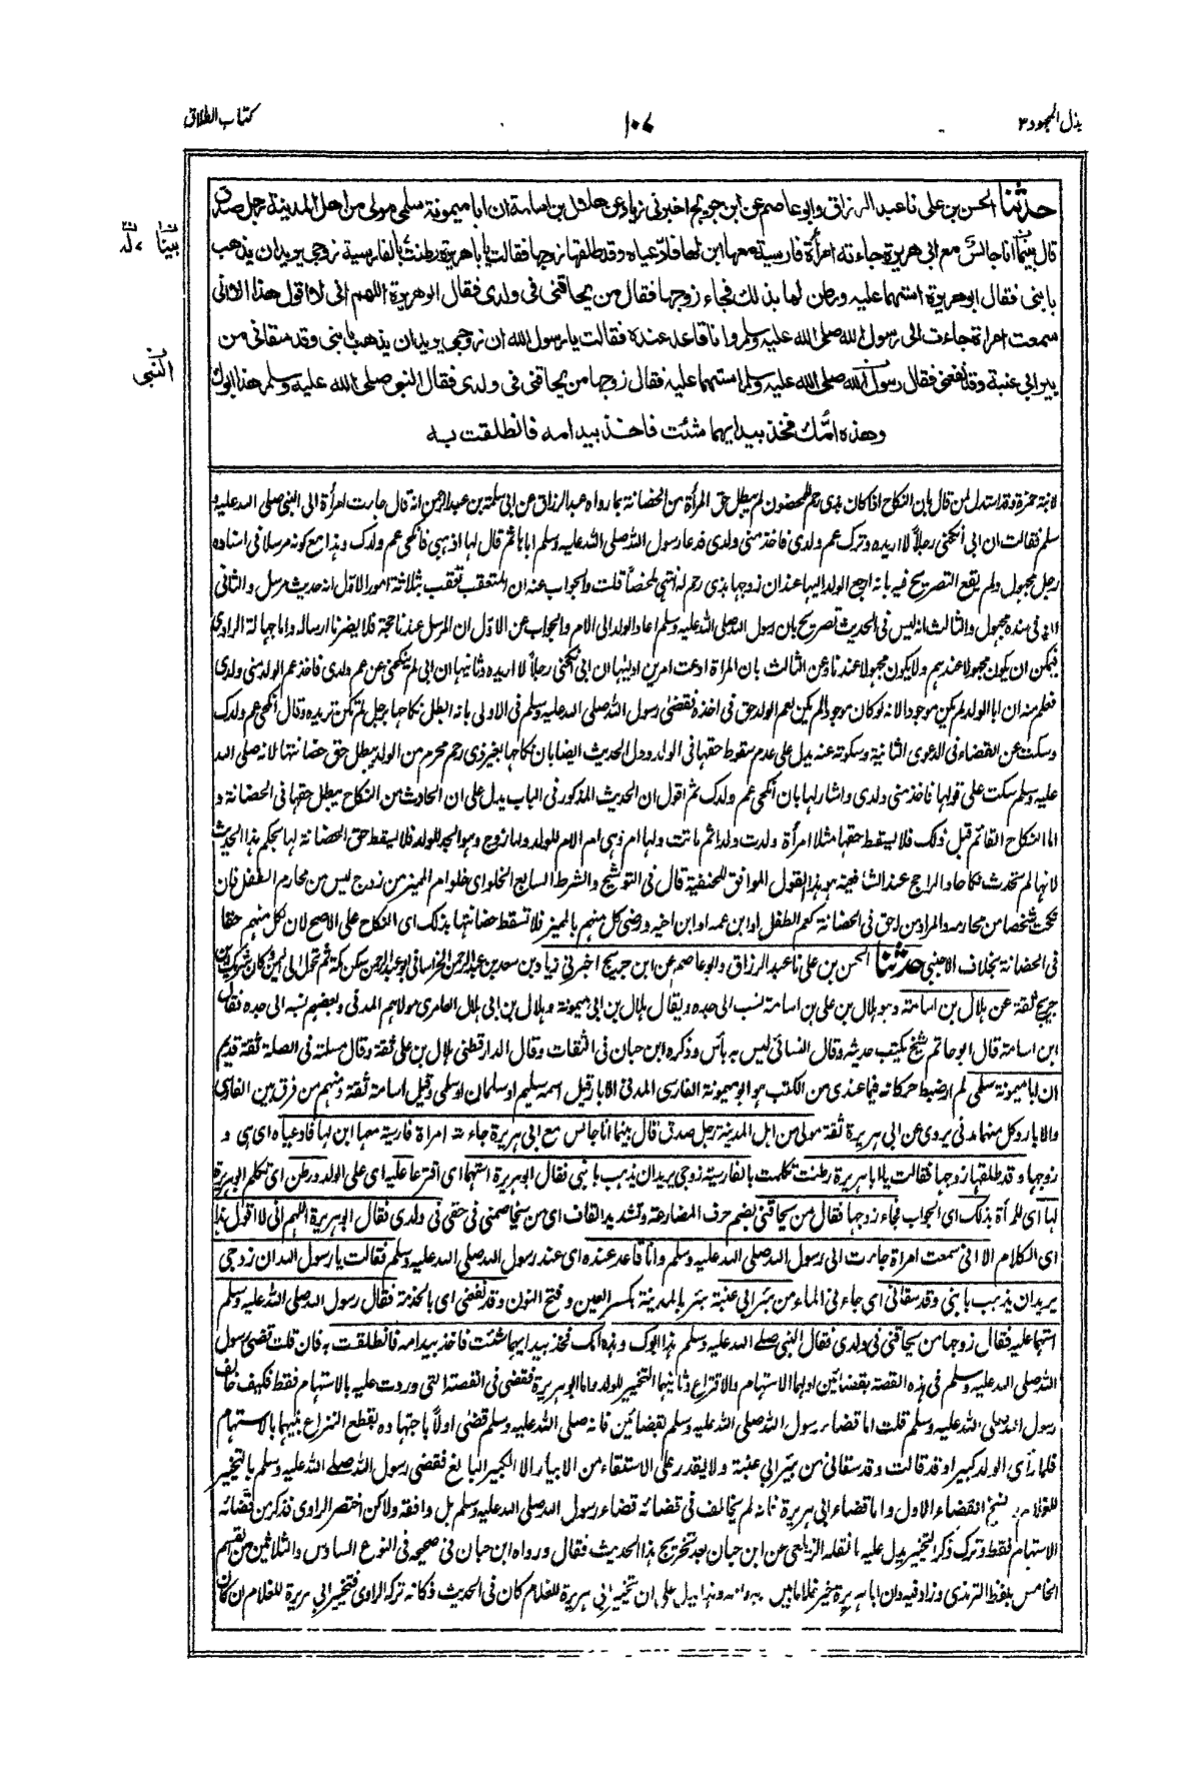 بذل المجهود ٣
١٠٧
كتاب الطلاق
حدثنا الحسن بن على نا عبد الرزاق وابو عاصم عن ابن جريج اخبرنى زياد عن هلال بن اسامة ان ابا ميمونة سلمى مولى من اهل المدينة رجل صدق
قال بينما انا جالس مع ابى هريرة جاءته امرأة فارسية معها ابن لها فادعياه وقد طلقها زوجها فقالت يا ابا هريرة رطنت بالفارسية زوجى يريد ان يذهب
بينا
بابنى فقال ابو هريرة استهما عليه ورطن لها بذلك فجاء زوجها فقال من يحاقنى فى ولدى فقال ابو هريرة اللهم انى لا اقول هذا الا انى
سمعت امرأة جاءت الى رسول الله صلى الله عليه وسلم وانا قاعد عنده فقالت يا رسول الله ان زوجى يريد ان يذهب بابنى وقد سقانى من
بير ابى عنبة وقد نفعنى فقال رسول الله صلى الله عليه وسلم استهما عليه فقال زوجها من يحاقنى فى ولدى فقال النبى صلى الله عليه وسلم هذا ابوك
النبى
وهذه امك فخذ بيد ايهما شئت فاخذ بيد امه فانطلقت به
لابنة حمزة وقد استدل لمن قال بان النكاح اذا كان بذى رحم للمحضون لم يبطل حق المرأة من الحضانة بما رواه عبد الرزاق عن ابى سلمة بن عبد الرحمن انه قال جاءت امرأة الى النبى صلى الله عليه و
سلم فقالت ان ابى انكحنى رجلاً لا اريده وترك عم ولدى فاخذ منى ولدى فدعا رسول الله صلى الله عليه وسلم اباها ثم قال لها اذهبى فانكحى عم ولدك وهذا مع كونه مرسلا فى اسناده
رجل مجهول ولم يقع التصريح فيه بانه ارجع الولد اليها عند ان زوجها بذى رحم له انتهى لمخصاً قلت والجواب عنه ان المتعقب تعقب بثلاثة امور الاول انه حديث مرسل والثانى
ان فى سنده مجهول والثالث انه ليس فى الحديث تصريح بان رسول الله صلى الله عليه وسلم اعاد الولد الى الام والجواب عن الاول ان المرسل عندنا حجة فلا يضرنا ارساله واما جهالة الراوى
فيمكن ان يكون مجهولا عندهم ولا يكون مجهولا عندنا وعن الثالث بان المرأة ادعت امرين اوليها ان ابى نكحنى رجلاً لا اريده وثانيها ان ابى لم ينكحنى عن عم ولدى فاخذ عم الولد منى ولدى
فعلم منه ان ابا الولد لم يكن موجودا لانه لو كان موجودا لم يكن لعم الولد حق فى اخذه فقضى رسول الله صلى الله عليه وسلم فى الاولى بانه ابطل نكاحها رجل لم تكن تريده وقال انكحى عم ولدك
وسكت عن القضاء فى الدعوى الثانية وسكوته عنه يدل على عدم سقوط حقها فى الولد ودل الحديث ايضا بان نكاحها بغير ذى رحم محرم من الولد يبطل حق حضانتها لانه صلى الله
عليه وسلم سكت على قولها فاخذ منى ولدى واشار لها بان انكحى عم ولدك ثم اقول ان الحديث المذكور فى الباب يدل على ان الحادث من النكاح يبطل حقها فى الحضانة و
اما النكاح القائم قبل ذلك فلا يسقط حقها مثلا امرأة ولدت ولدا ثم ماتت ولها ام وهى ام الام للولد ولها زوج وهو الجد للولد فلا يسقط حق الحضانة لها بحكم هذا الحديث
لانها لم تحدث نكاحا والراجح عند الشافعية هو هذا القول الموافق للحنفية قال فى التوشيح والشرط السابع الخلو اى خلو ام المميز من زوج ليس من محارم الطفل فان
نكحت شخصا من محارمه والمراد من له حق فى الحضانة كعم الطفل او ابن عمه او ابن اخيه ورضى كل منهم بالمميز فلا تسقط حضانتها بذلك اى النكاح على الاصح لان لكل منهم حقا
فى الحضانة بخلاف الاجنبى حدثنا الحسن بن على نا عبد الرزاق وابو عاصم عن ابن جريج اخبرنى زياد بن سعد بن عبد الرحمن الخراسانى ابو عبد الرحمن سكن مكة ثم تحول الى اليمن وكان شريك ابن
جريج ثقة عن هلال بن اسامة وهو هلال بن على بن اسامة نسب الى جده ويقال هلال بن ابى ميمونة وهلال بن ابى هلال العامرى مولاهم المدنى وبعضهم نسبه الى جده فقال
ابن اسامة قال ابو حاتم شيخ يكتب حديثه وقال النسائى ليس به بأس وذكره ابن حبان فى الثقات وقال الدارقطنى هلال بن على ثقة وقال مسلمة فى الصلة ثقة قديم
ان ابا ميمونة سلمى لم ار ضبط حركاته فيما عندى من الكتب هو ابو ميمونة الفارسى المدنى الابار قيل اسمه سليم او سلمان او سلمى وقيل اسامة ثقة ومنهم من فرق بين الفارسى
والابار وكل منهما مدنى يروى عن ابى هريرة ثقة مولى من اهل المدينة رجل صدق قال بينما انا جالس مع ابى هريرة جاءته امرأة فارسية معها ابن لها فادعياه اى هى و
زوجها وقد طلقها زوجها فقالت يا ابا هريرة رطنت تكلمت بالفارسية زوجى يريد ان يذهب بابنى فقال ابو هريرة استهما اى اقترعا عليه اى على الولد ورطن اى تكلم ابو هريرة
لها اى للمرأة بذلك اى الجواب فجاء زوجها فقال من يحاقنى بضم حرف المضارعة وتشديد القاف اى من يخاصمنى فى حقى فى ولدى فقال ابو هريرة اللهم انى لا اقول هذا
اى الكلام الا انى سمعت امرأة جاءت الى رسول الله صلى الله عليه وسلم وانا قاعد عنده اى عند رسول الله صلى الله عليه وسلم فقالت يا رسول الله ان زوجى
يريد ان يذهب بابنى وقد سقانى اى جاءنى الماء من بئر ابى عنبة بئر بالمدينة بكسر العين وفتح النون وقد نفعنى اى بالخدمة فقال رسول الله صلى الله عليه وسلم
استهما عليه فقال زوجها من يحاقنى فى ولدى فقال النبى صلى الله عليه وسلم هذا ابوك وهذه امك فخذ بيد ايهما شئت فاخذ بيد امه فانطلقت به فان قلت قضى رسول
الله صلى الله عليه وسلم فى هذه القصة بقضائين اولهما الاستهام والاقتراع وثانيها التخيير للولد واما ابو هريرة فقضى فى القصة التى وردت عليه بالاستهام فقط فكيف خالف
رسول الله صلى الله عليه وسلم قلت اما قضاء رسول الله صلى الله عليه وسلم بقضائين فانه صلى الله عليه وسلم قضى اولاً باجتهاده بقطع النزاع بينهما بالاستهام
فلما رأى الولد كبيرا وقد قالت وقد سقانى من بئر ابى عنبة ولا يقدر على الاستقاء من الابيار الا الكبير البالغ فقضى رسول الله صلى الله عليه وسلم بالتخيير
للغلام نسخ القضاء الاول واما قضاء ابى هريرة فانه لم يخالف فى قضائه قضاء رسول الله صلى الله عليه وسلم بل وافقه ولاكن اختصر الراوى فذكر من قضائه
الاستهام فقط وترك ذكر التخيير يدل عليه ما نقله الزيلعى عن ابن حبان بعد تخريج هذا الحديث فقال ورواه ابن حبان فى صحيحه فى النوع السادس والثلاثين من القسم
الخامس بلفظ الترمذى وزاد فيه وان ابا هريرة خير غلاما بين وهذا يدل على ان تخيير ابى هريرة للغلام كان فى الحديث فكانه ترك الراوى فتخيير ابى هريرة للغلام ان كان